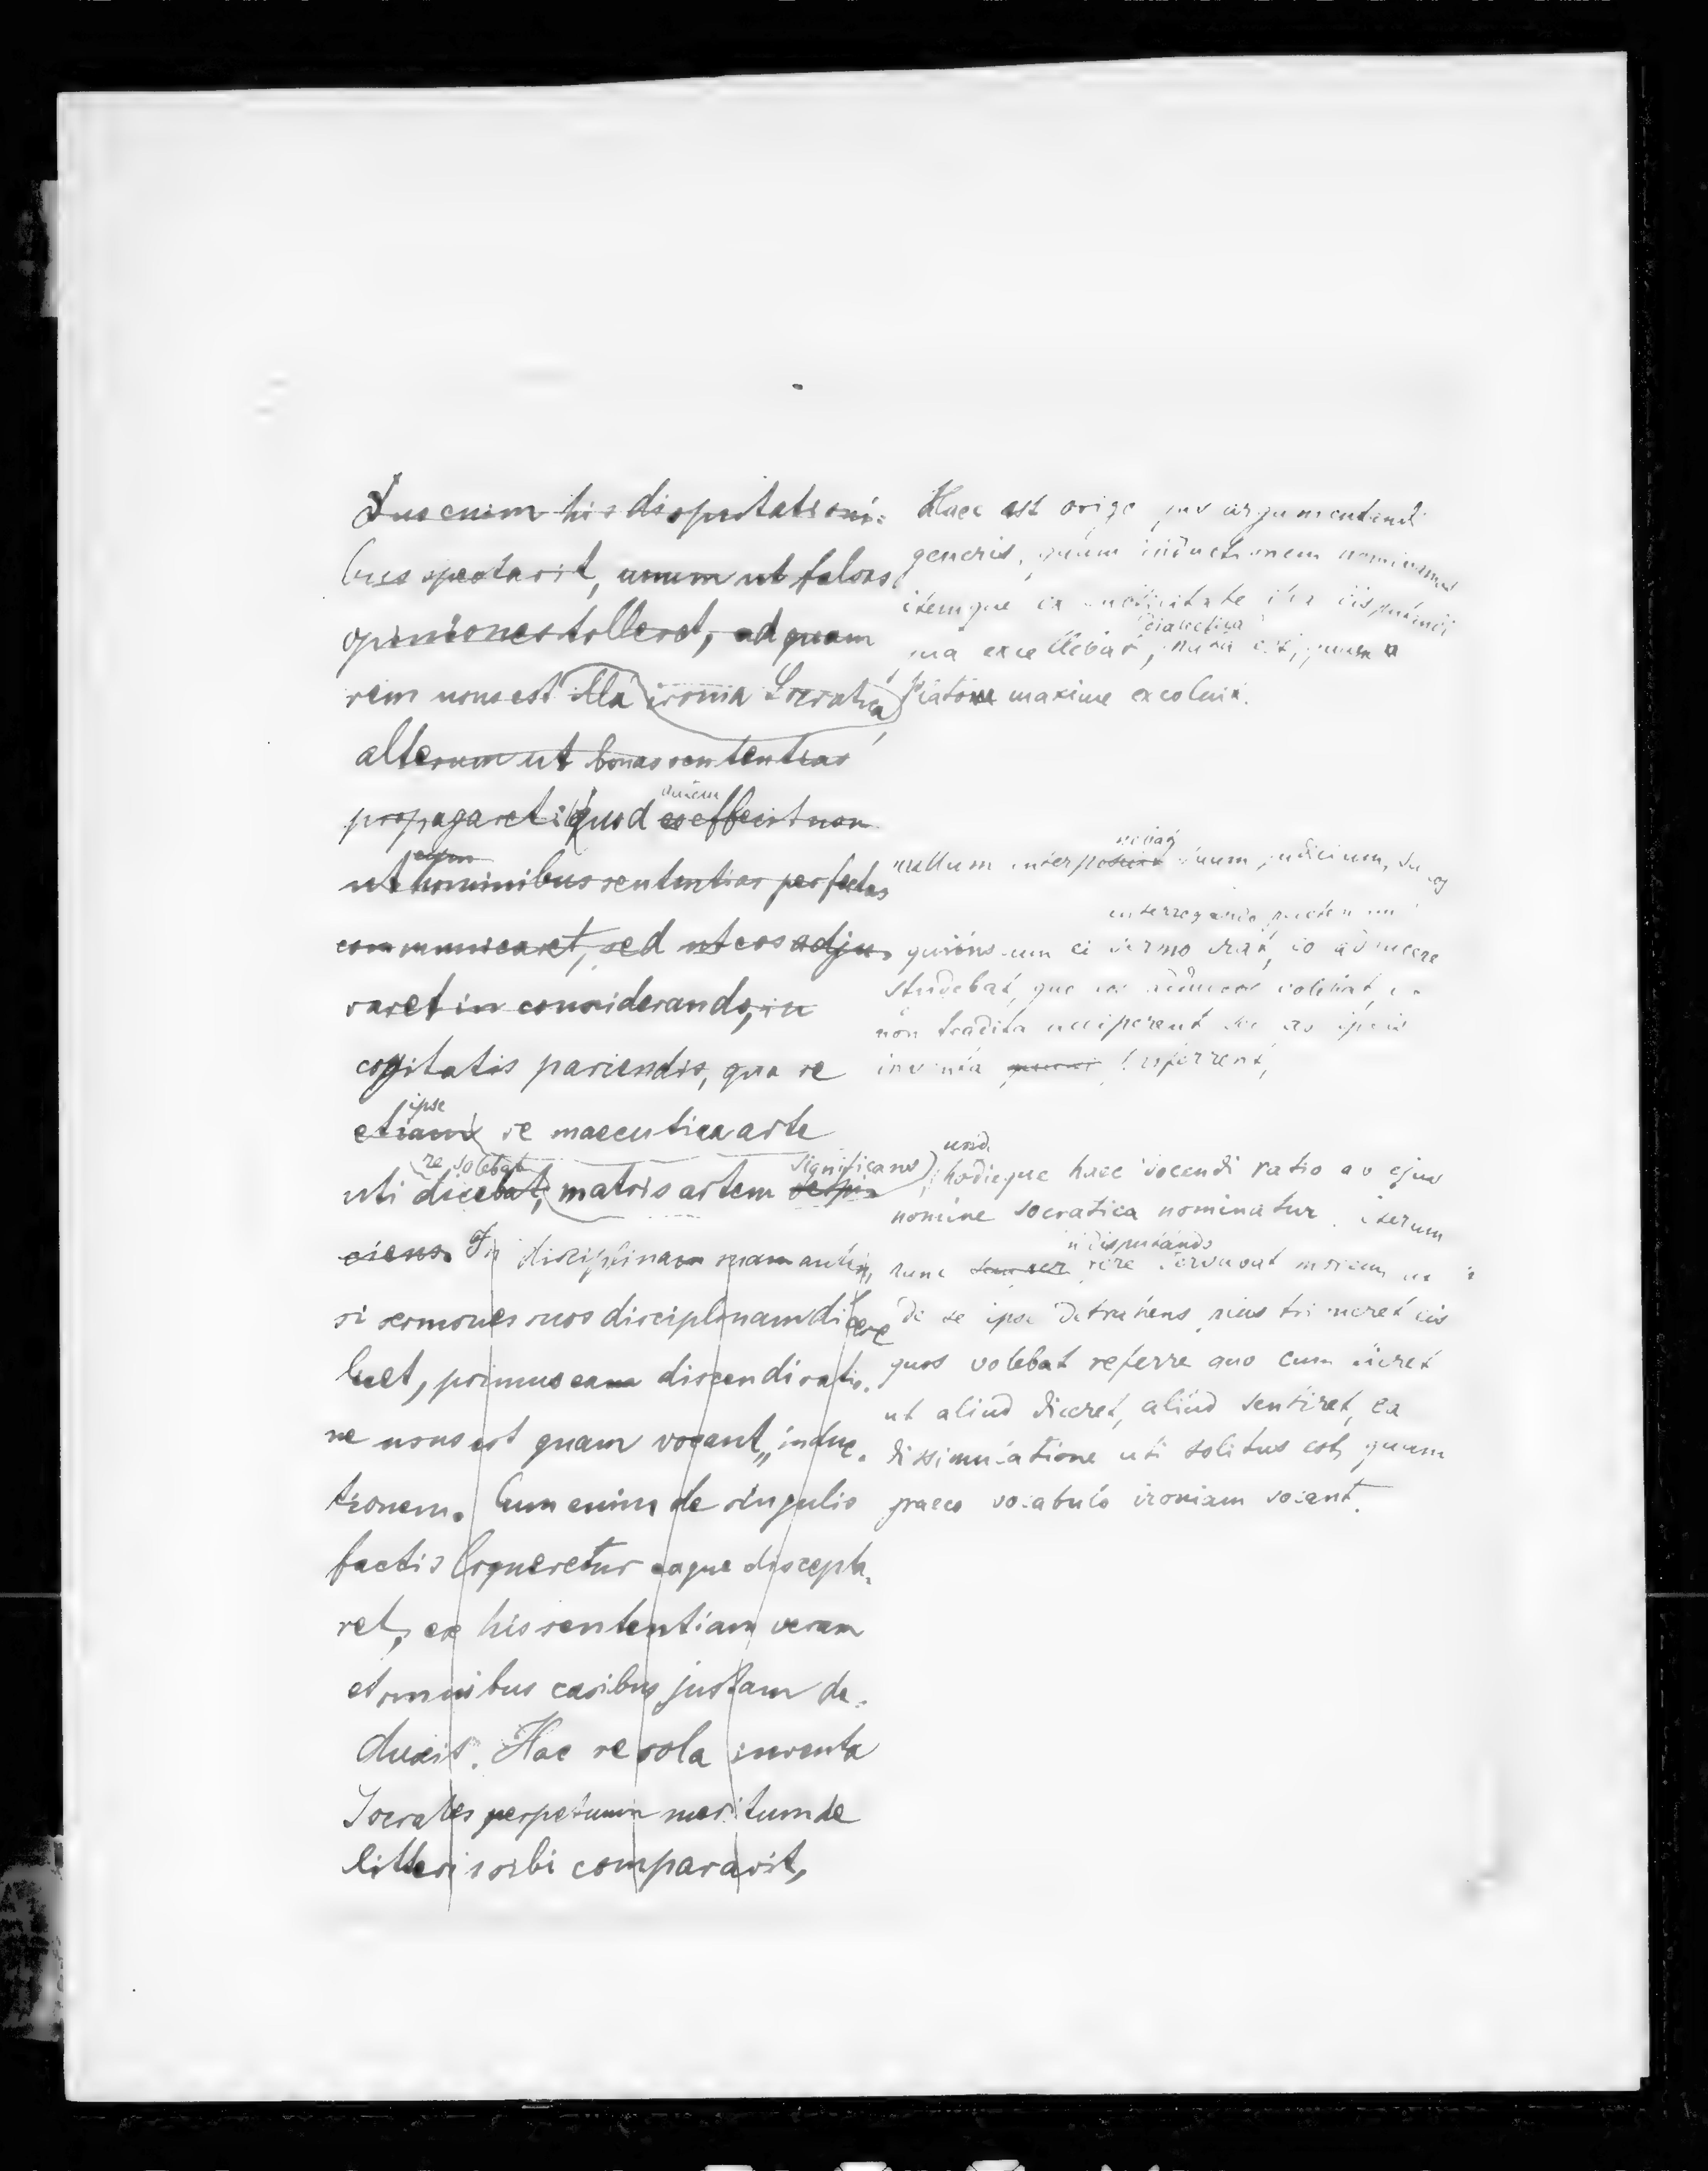 Duo enim his disputationi-
bus spectavit, unum ut falsas
opiniones tolleret, ad quam
rem usus est illa ironia Socratica,
alterum ut bonas sententias
propagaret; quod autem
eo effecit non
eum
ut hominibus sententias perfectas
communicaret, sed ut eos adju-
varet in considerando, in
cogitatis pariendis, qua re
ipse
etiam se maeeutica arte
re solebat significans
uti dicebat, matris artem
ciens. In disciplina sua autem,
si sermones suos disciplinam dicere
licet, primus ea discendi ratio-
ne usus est quam vocant „induc-
tionem. Cum enim de singulis
factis loqueretur eaque discepta-
ret, ex his sententiam veram
et omnibus casibus justam de-
duxit. Hac re sola inventa
Socrates perpetuum meritum de
litteris sibi comparavit,
Haec est origo argumentandi
generis, quam inductionem nominamus
itemque ea disputandi
dialectica
qua excellebat, nata est, quam
Platon maxime excoluit.
nullum suum judicium, sed eos
interrogando
quibuscum ei sermo erat, eo adducere
studebat, quo eos adducere volebat, ut
non tradita acciperent sed ab ipsis
inventa referrent,
unde
hodieque haec docendi ratio ab ejus
nomine socratica nominatur. iterum
in disputando
hunc fere servavit morem, ut
de se ipse detrahens plus tribueret eis
quos volebat refellere quo cum diceret
ut aliud diceret, aliud sentiret, ea
dissimulatione uti solitus est, quam
graeco vocabulo ironiam vocant.